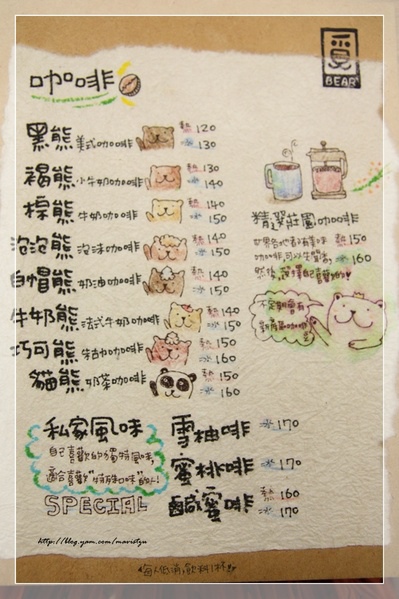 夏
BEAR
咖啡
黑熊 美式咖啡 熱 120
冰 130
褐熊 小牛奶咖啡 熱 130
冰 140
棕熊 牛奶咖啡 熱 140
冰 150
泡泡熊 泡沫咖啡 熱 140
冰 150
白帽熊 奶油咖啡 熱 140
冰 150
牛奶熊 法式牛奶咖啡 熱 140
冰 150
巧可熊 熱 150
冰 160
貓熊 奶茶咖啡 熱 150
冰 160
精選莊園咖啡
熱 150
冰 160
私家風味
自己喜歡的獨特風味,
適合喜歡"特殊口味"的人!
SPECIAL
雪柚啡 冰 170
蜜桃啡 冰 170
鹹蜜啡 熱 160
冰 170
http://blog.yam.com/mavistzu
每人低消,飲料1杯